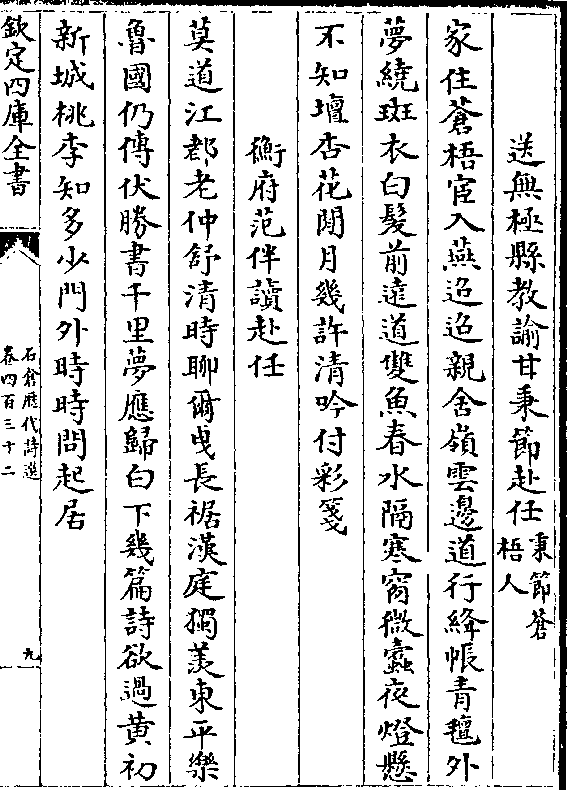 送無極縣教諭甘秉節赴任秉節蒼梧人
家住蒼梧宦入燕迢迢親舍嶺雲邊道行絳帳青氊外
夢繞斑衣白髮前遠道雙魚春水隔寒窗微蠧夜燈懸
不知壇杏花開月幾許清吟付彩箋
衡府范伴讀赴任
莫道江郡老仲舒清時聊爾曳長裾漢庭獨羡東平樂
魯國仍傳伏勝書千里夢應歸白下幾篇詩欲過黄初
新城桃李知多少門外時時問起居
欽定四庫全書
石倉歴代詩選
卷四百三十二
九